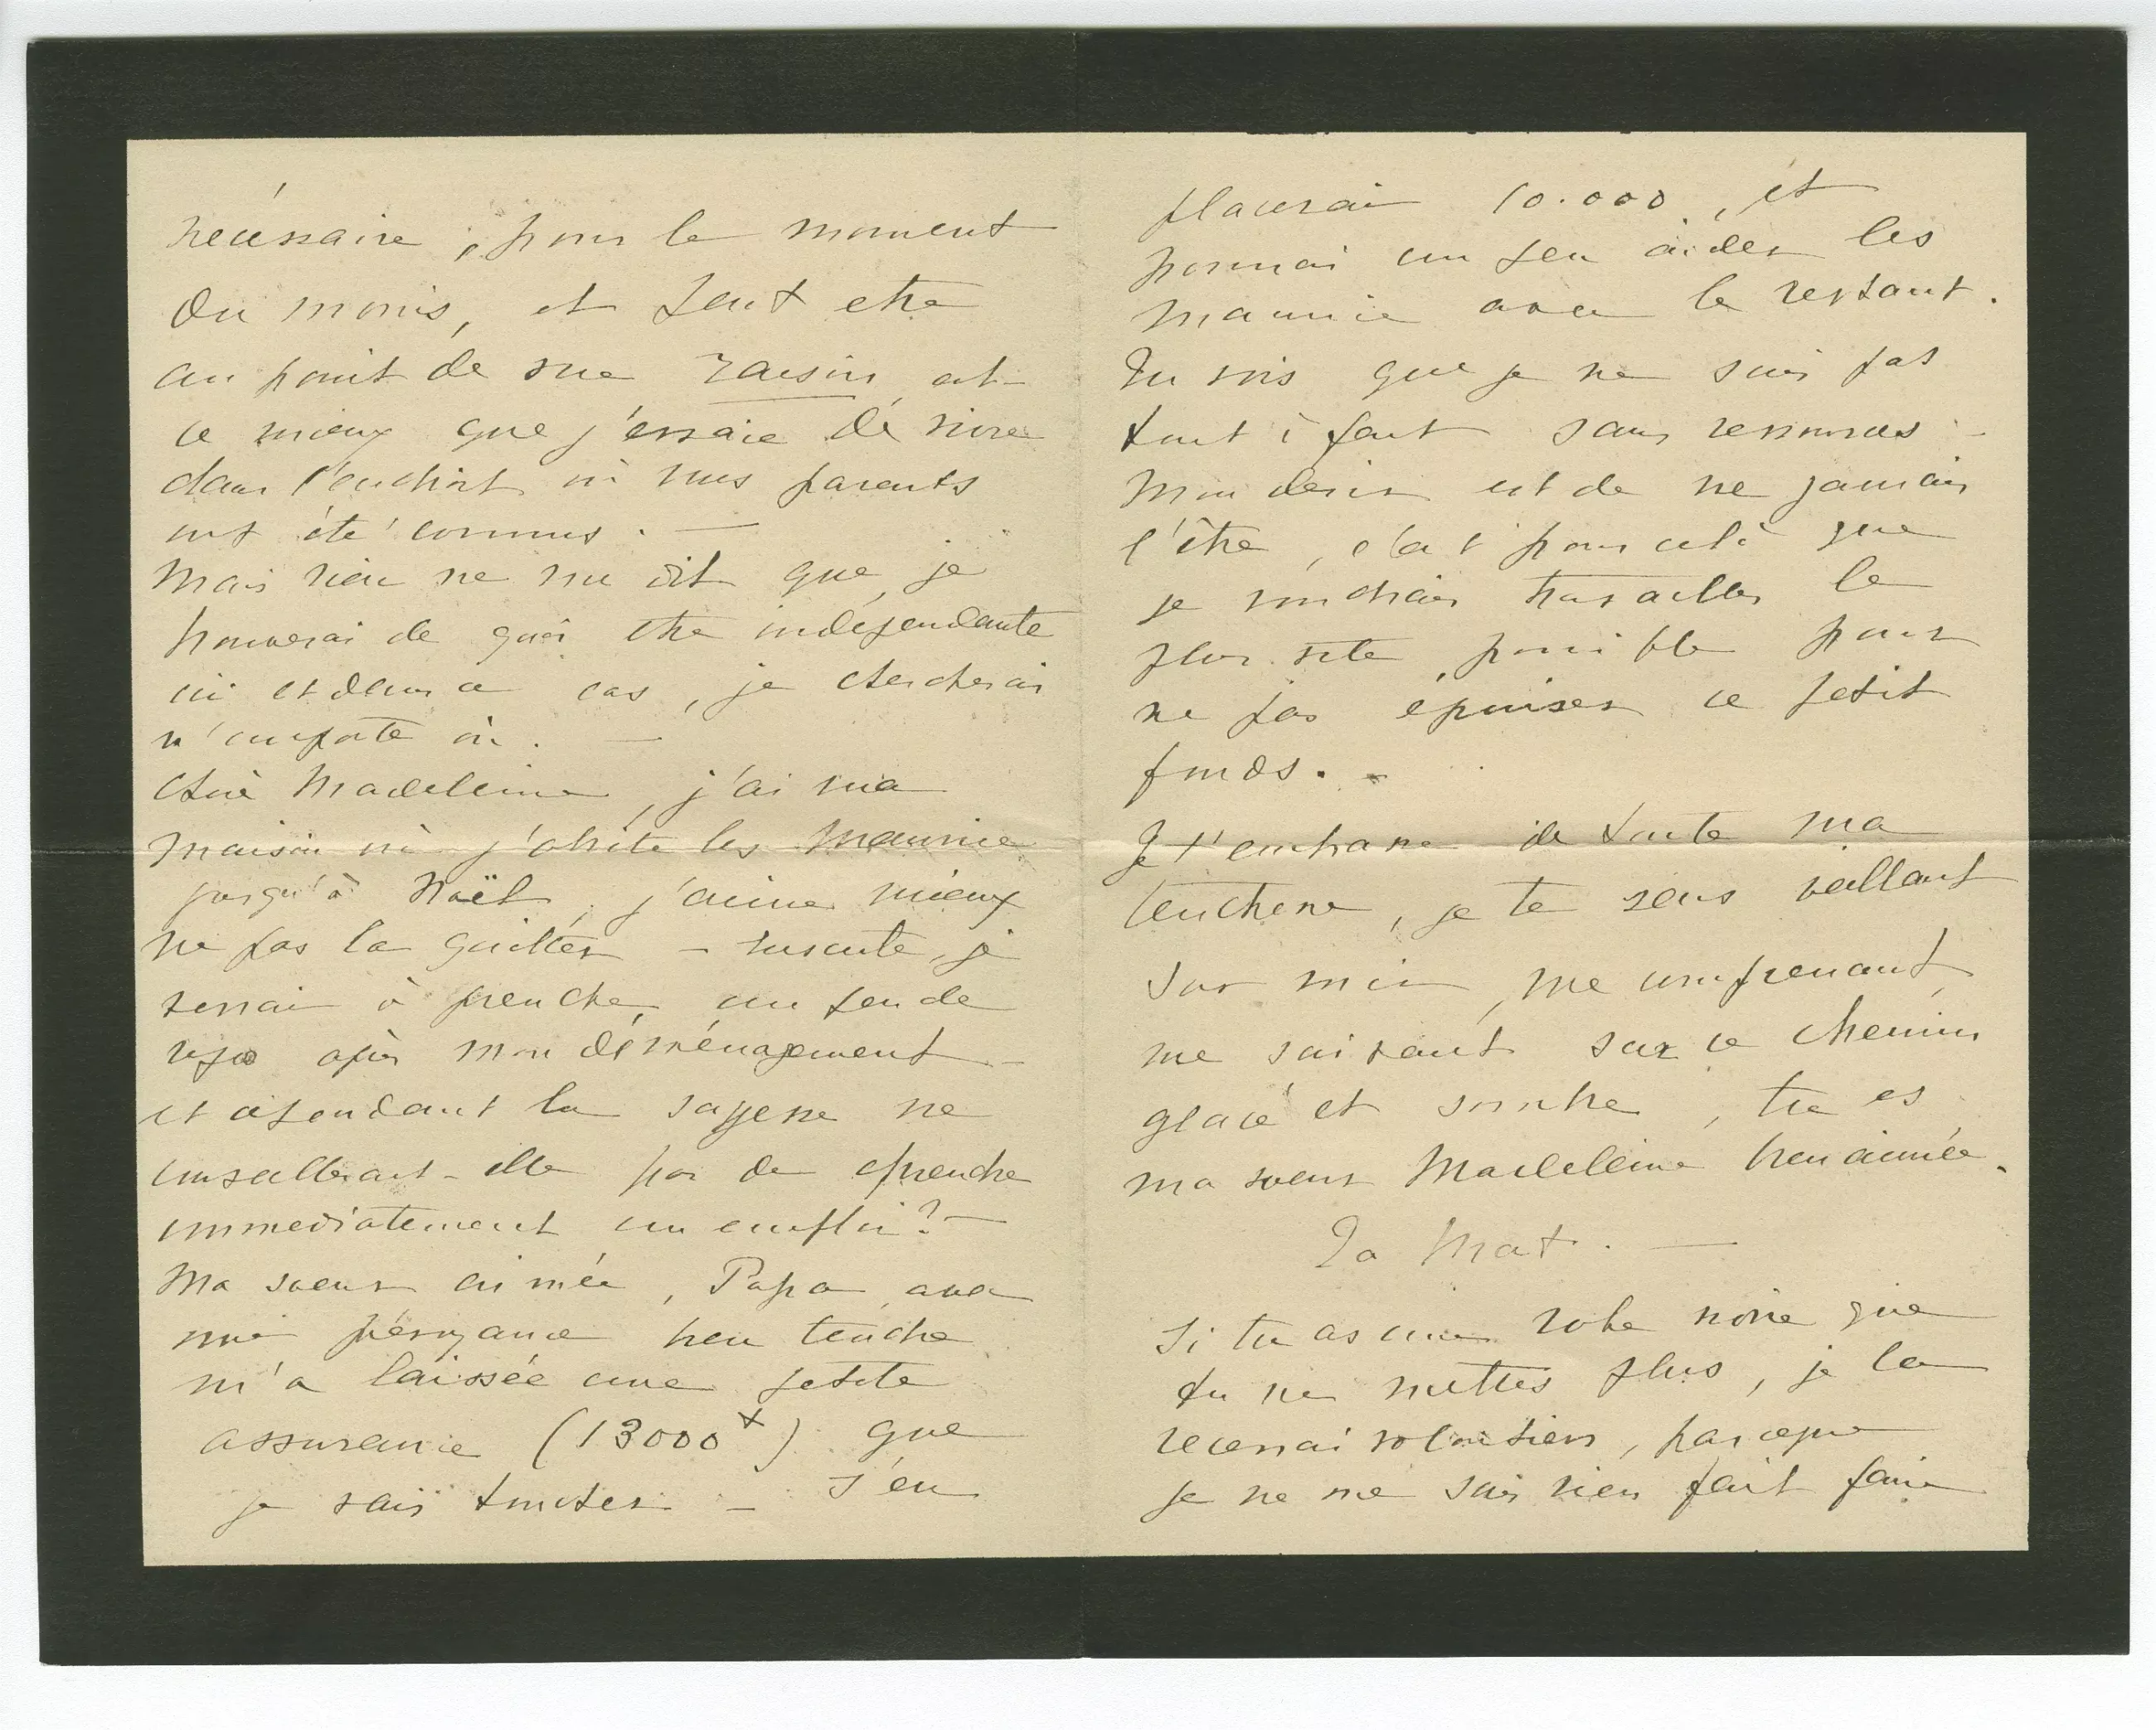 nécessaire, pour le moment
du moins, et peut etre
au point de vue raison, est-
ce mieux que j'essaie de vivre
dans l'endroit où nos parents
ont été connus. —
Mais rien ne me dit que je
trouverai de quoi etre indépendante
ici et dans ce cas, je chercherai
n'importe où. —
Chère Madeleine, j'ai ma
maison où j'abrite les Maurice
jusqu'à Noël, j'aime mieux
ne pas la quitter — ensuite, je
serrai à prendre un peu de
repos après mon déménagement —
et cependant la sagesse ne
conseillerait-elle pas de prendre
immediatement un emploi? —
Ma soeur aimée, Papa avec
une prévoyance bien tendre
m'a laissée une petite
assurance (13000 x) que
je vais toucher — J'en
placerai 10.000, et
pourrai un peu aider les
Maurice avec le restant.
Tu vois que je ne suis pas
tout à fait sans ressources —
Mon desir est de ne jamais
l'être, c'est pour celà que
je voudrais travailler le
plus vite possible pour
ne pas épuiser ce petit
fonds. -
Je t'embrasse de toute ma
tendresse, je te sens veillant
sur moi, me comprenant,
me suivant sur ce chemin
glacé et sombre, tu es
ma soeur Madeleine bien aimée.
Ta Mat. —
Si tu as une robe noire que
tu ne mettes plus, je la
recevrai volontiers, parceque
je ne me suis rien fait faire